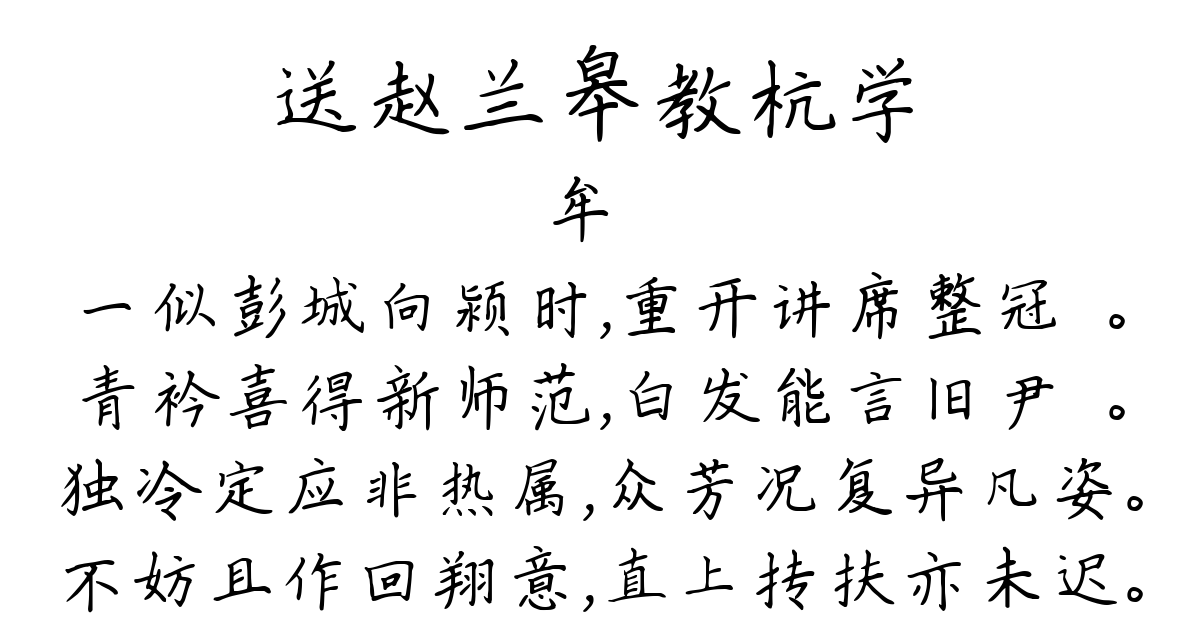 送赵兰皋教杭学
牟
一似彭城向颍时,重开讲席整冠 。
青衿喜得新师范,白发能言旧尹 。
独冷定应非热属,众芳况复异凡姿。
不妨且作回翔意,直上抟扶亦未迟。